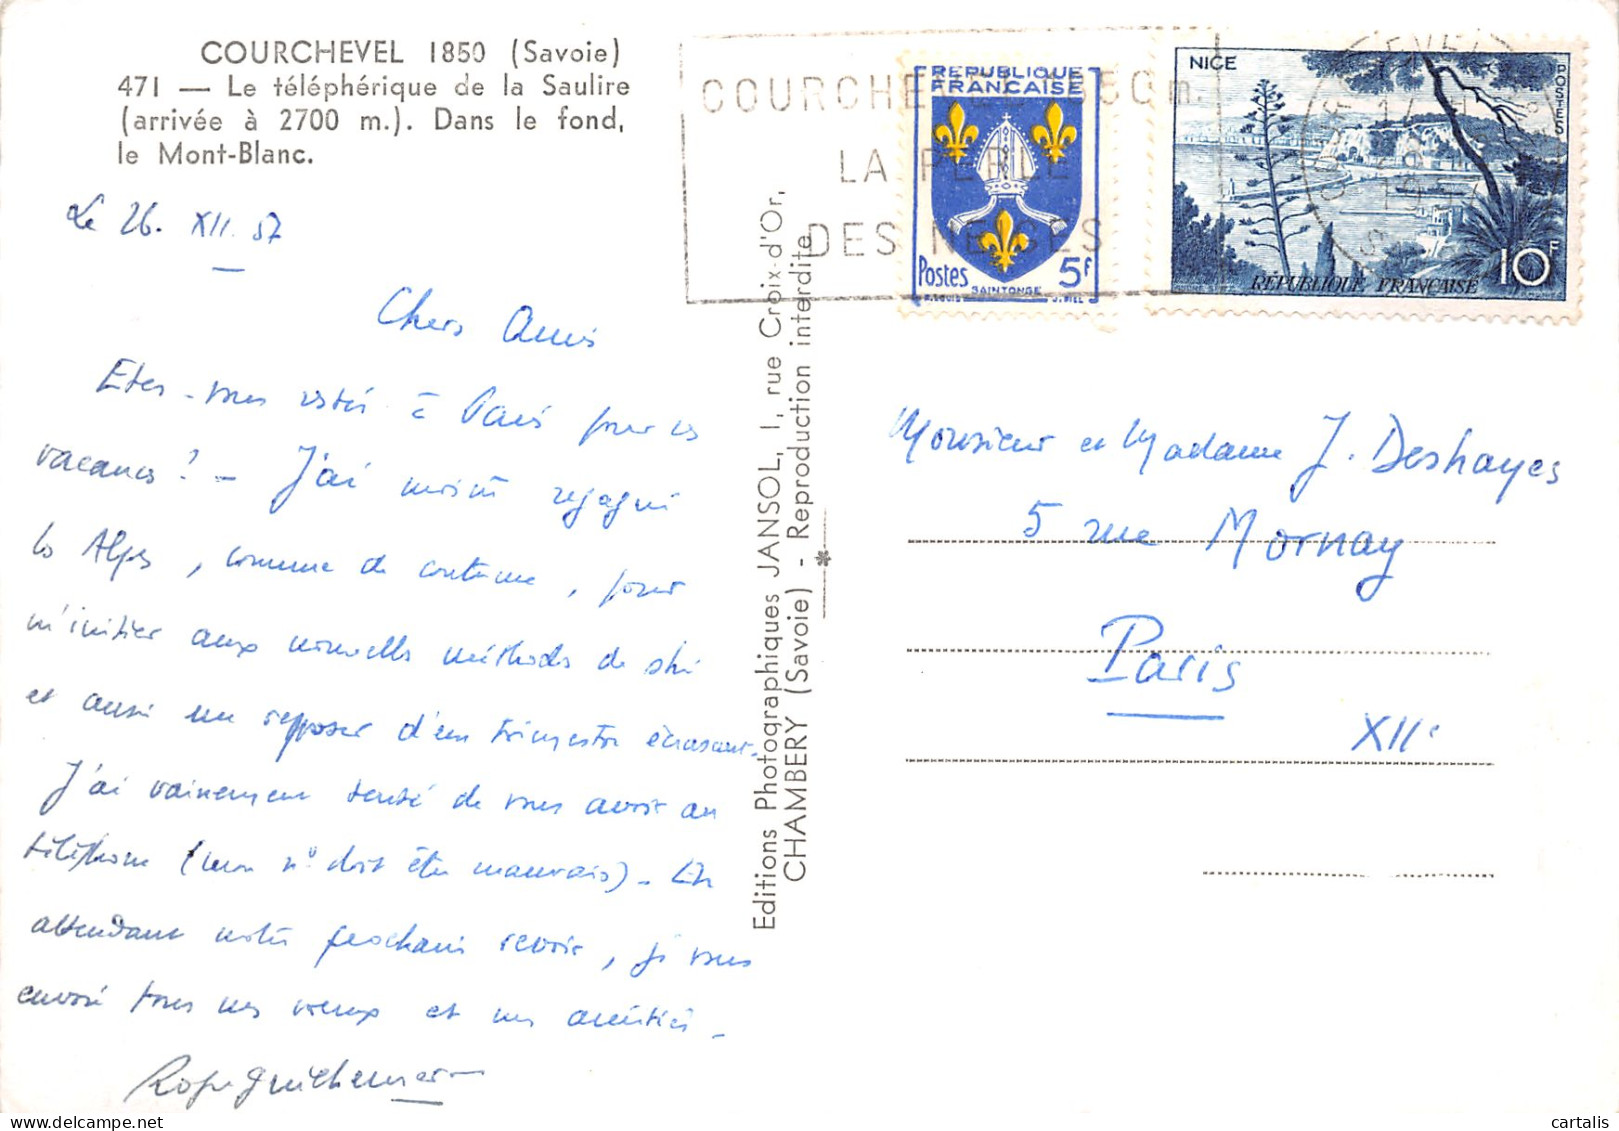 COURCHEVEL 1850 (Savoie)
471 — Le téléphérique de la Saulire
(arrivée à 2700 m.). Dans le fond,
le Mont-Blanc.
Le 26. XII. 57
Chers Amis
Etes-vous restés à Paris pour les
vacances ? - J'ai moi regagné
les Alpes, comme de coutume, pour
m'initier aux nouvelles méthodes de ski
et aussi me reposer d'un trimestre écrasant.
J'ai vainement tenté de vous avoir au
téléphone (mon n° doit être mauvais) - En
attendant notre prochain revoir, je vous
envoie tous mes voeux et mes amitiés -
Editions Photographiques JANSOL, 1, rue Croix-d'Or,
CHAMBERY (Savoie) - Reproduction interdite
COURCHEVEL 1850 m.
LA PERLE
DES NEIGES
REPUBLIQUE
FRANCAISE
Postes 5F
SAINTONGE
NICE
POSTES
10F
RÉPUBLIQUE FRANÇAISE
Monsieur et Madame J. Deshayes
5 rue Mornay
Paris
XIIe
cartalis